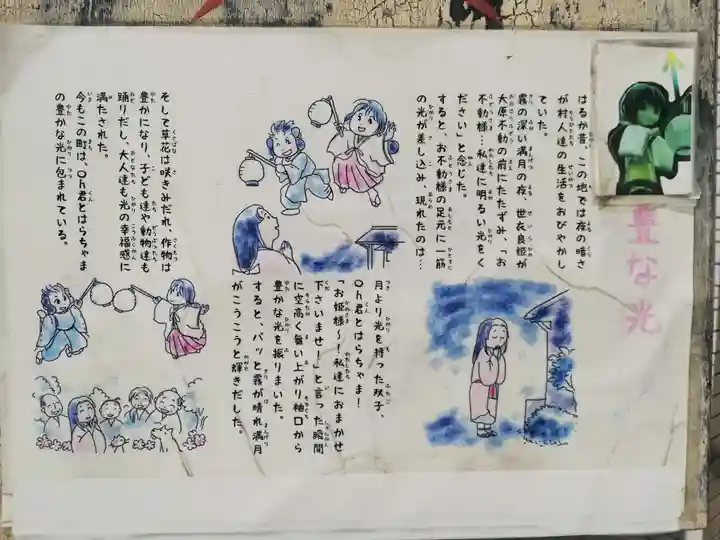 豊な光
はるか昔、この地では夜の暗さ
が村人達の生活をおびやかし
ていた。
霧の深い満月の夜、世衣良姫が
大原不動の前にたたずみ、「お
不動様…私達に明るい光をく
ださい」と念じた。
すると、お不動様の足元に一筋
の光が差しこみ現れたのは…
月より光を持った双子、
Oh君とはらちゃま！
「お姫様〜！私達におまかせ
下さいませ！」と言った瞬間
に空高く舞い上がり袖口から
豊かな光を振りまいた。
すると、パッと霧が晴れ満月
がこうこうと輝きだした。
そして草花は咲きみだれ、作物は
豊かになり、子ども達や動物達も
踊りだし、大人達も光の幸福感に
満たされた。
今もこの町は、Oh君とはらちゃま
の豊かな光に包まれている。